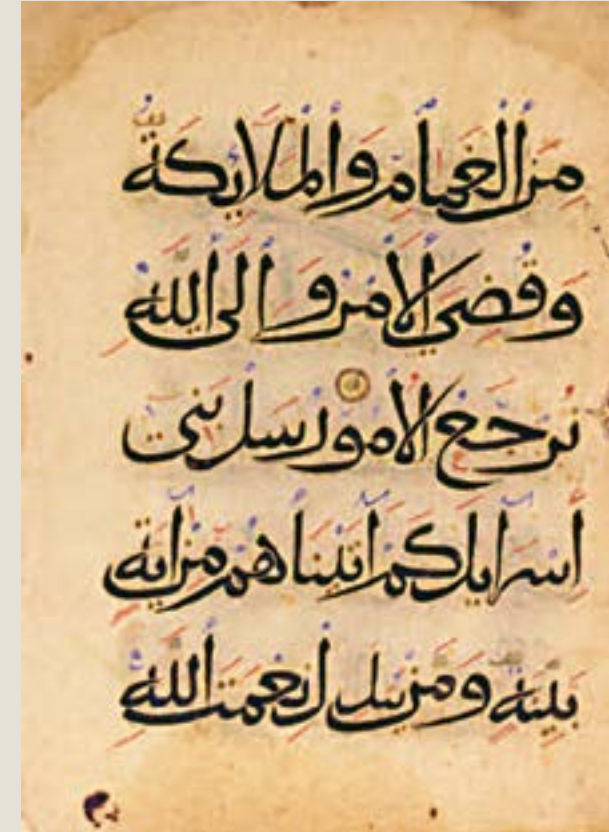 مِنَ الْغَمَامِ وَالْمَلَايِكَةُ
وَقُضِيَ الْأَمْرُ وَإِلَى اللَّهِ
تُرْجَعُ الْأُمُورُ سَلْ بَنِي
إِسْرَايِلَ كَمْ آتَيْنَاهُمْ مِنْ آيَةٍ
بَيِّنَةٍ وَمَنْ يُبَدِّلْ نِعْمَتَ اللَّهِ